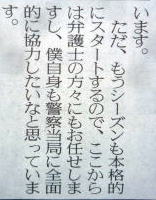 います。
ただ、もうシーズンも本格的
にスタートするので、ここから
は弁護士の方々にもお任せしま
すし、僕自身も警察当局に全面
的に協力したいなと思っていま
す。